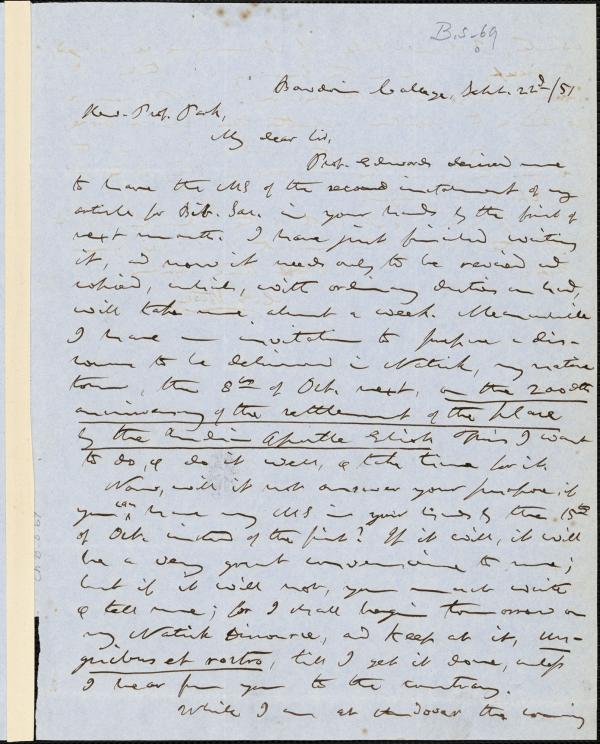 B.S-69
Bowdoin College, Sept. 22d/51
Rev. Prof. Park,
My dear Sir,
Prof. Edwards desired me
to have the MS of the second instalment of my
article for Bib. Sac. in your hands by the first of
next month. I have just finished writing
it, and now it needs only to be revised and
copied, which, with ordinary duties on hand,
will take me about a week. Meanwhile
I have an invitation to prepare a dis-
course to be delivered in Natick, my native
town, the 8th of Oct. next, on the 200dth
anniversary of the settlement of the place
by the Indian Apostle Eliot. This I want
to do, & do it well, & take time for it.
Now, will it not answer your purpose if
you can have my MS in your hands by the 15th
of Oct. instead of the first? If it will, it will
be a very great convenience to me;
but if it will not, you must write
& tell me; for I shall begin tomorrow on
my Natick Discourse, and keep at it, un-
guibus et rostro, till I get it done, unless
I hear from you to the contrary.
While I am at Andover the coming